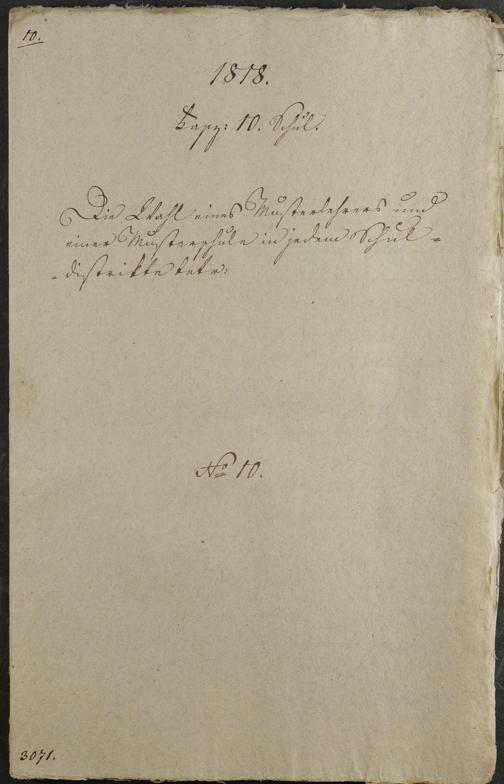 10.
1818.
Fasz: 10. Schul.
Die Wahl eines Musterlehrers und
einer Musterschule in jedem Schul-
-distrikte betr:
No 10.
3071.